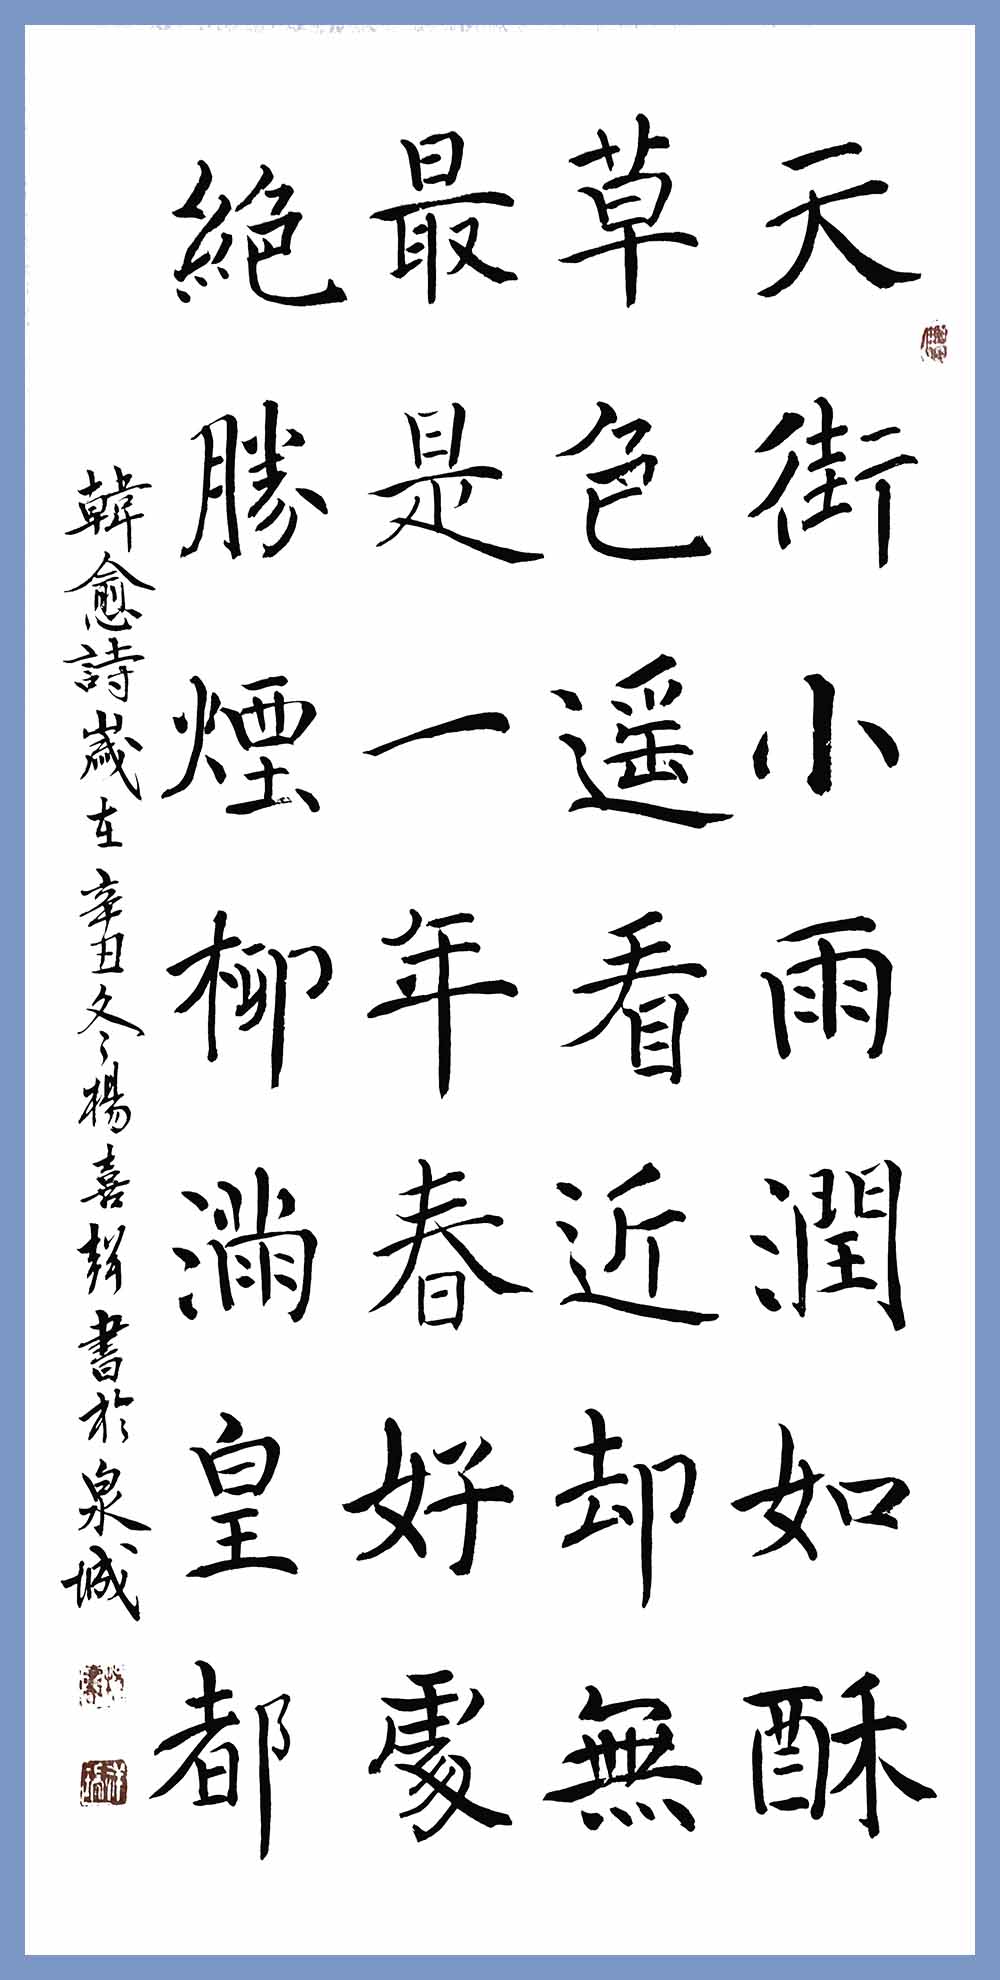 天街小雨潤如酥
草色遥看近却無
最是一年春好處
絶勝煙柳滿皇都
韓愈詩歲在辛丑冬楊喜書於泉城